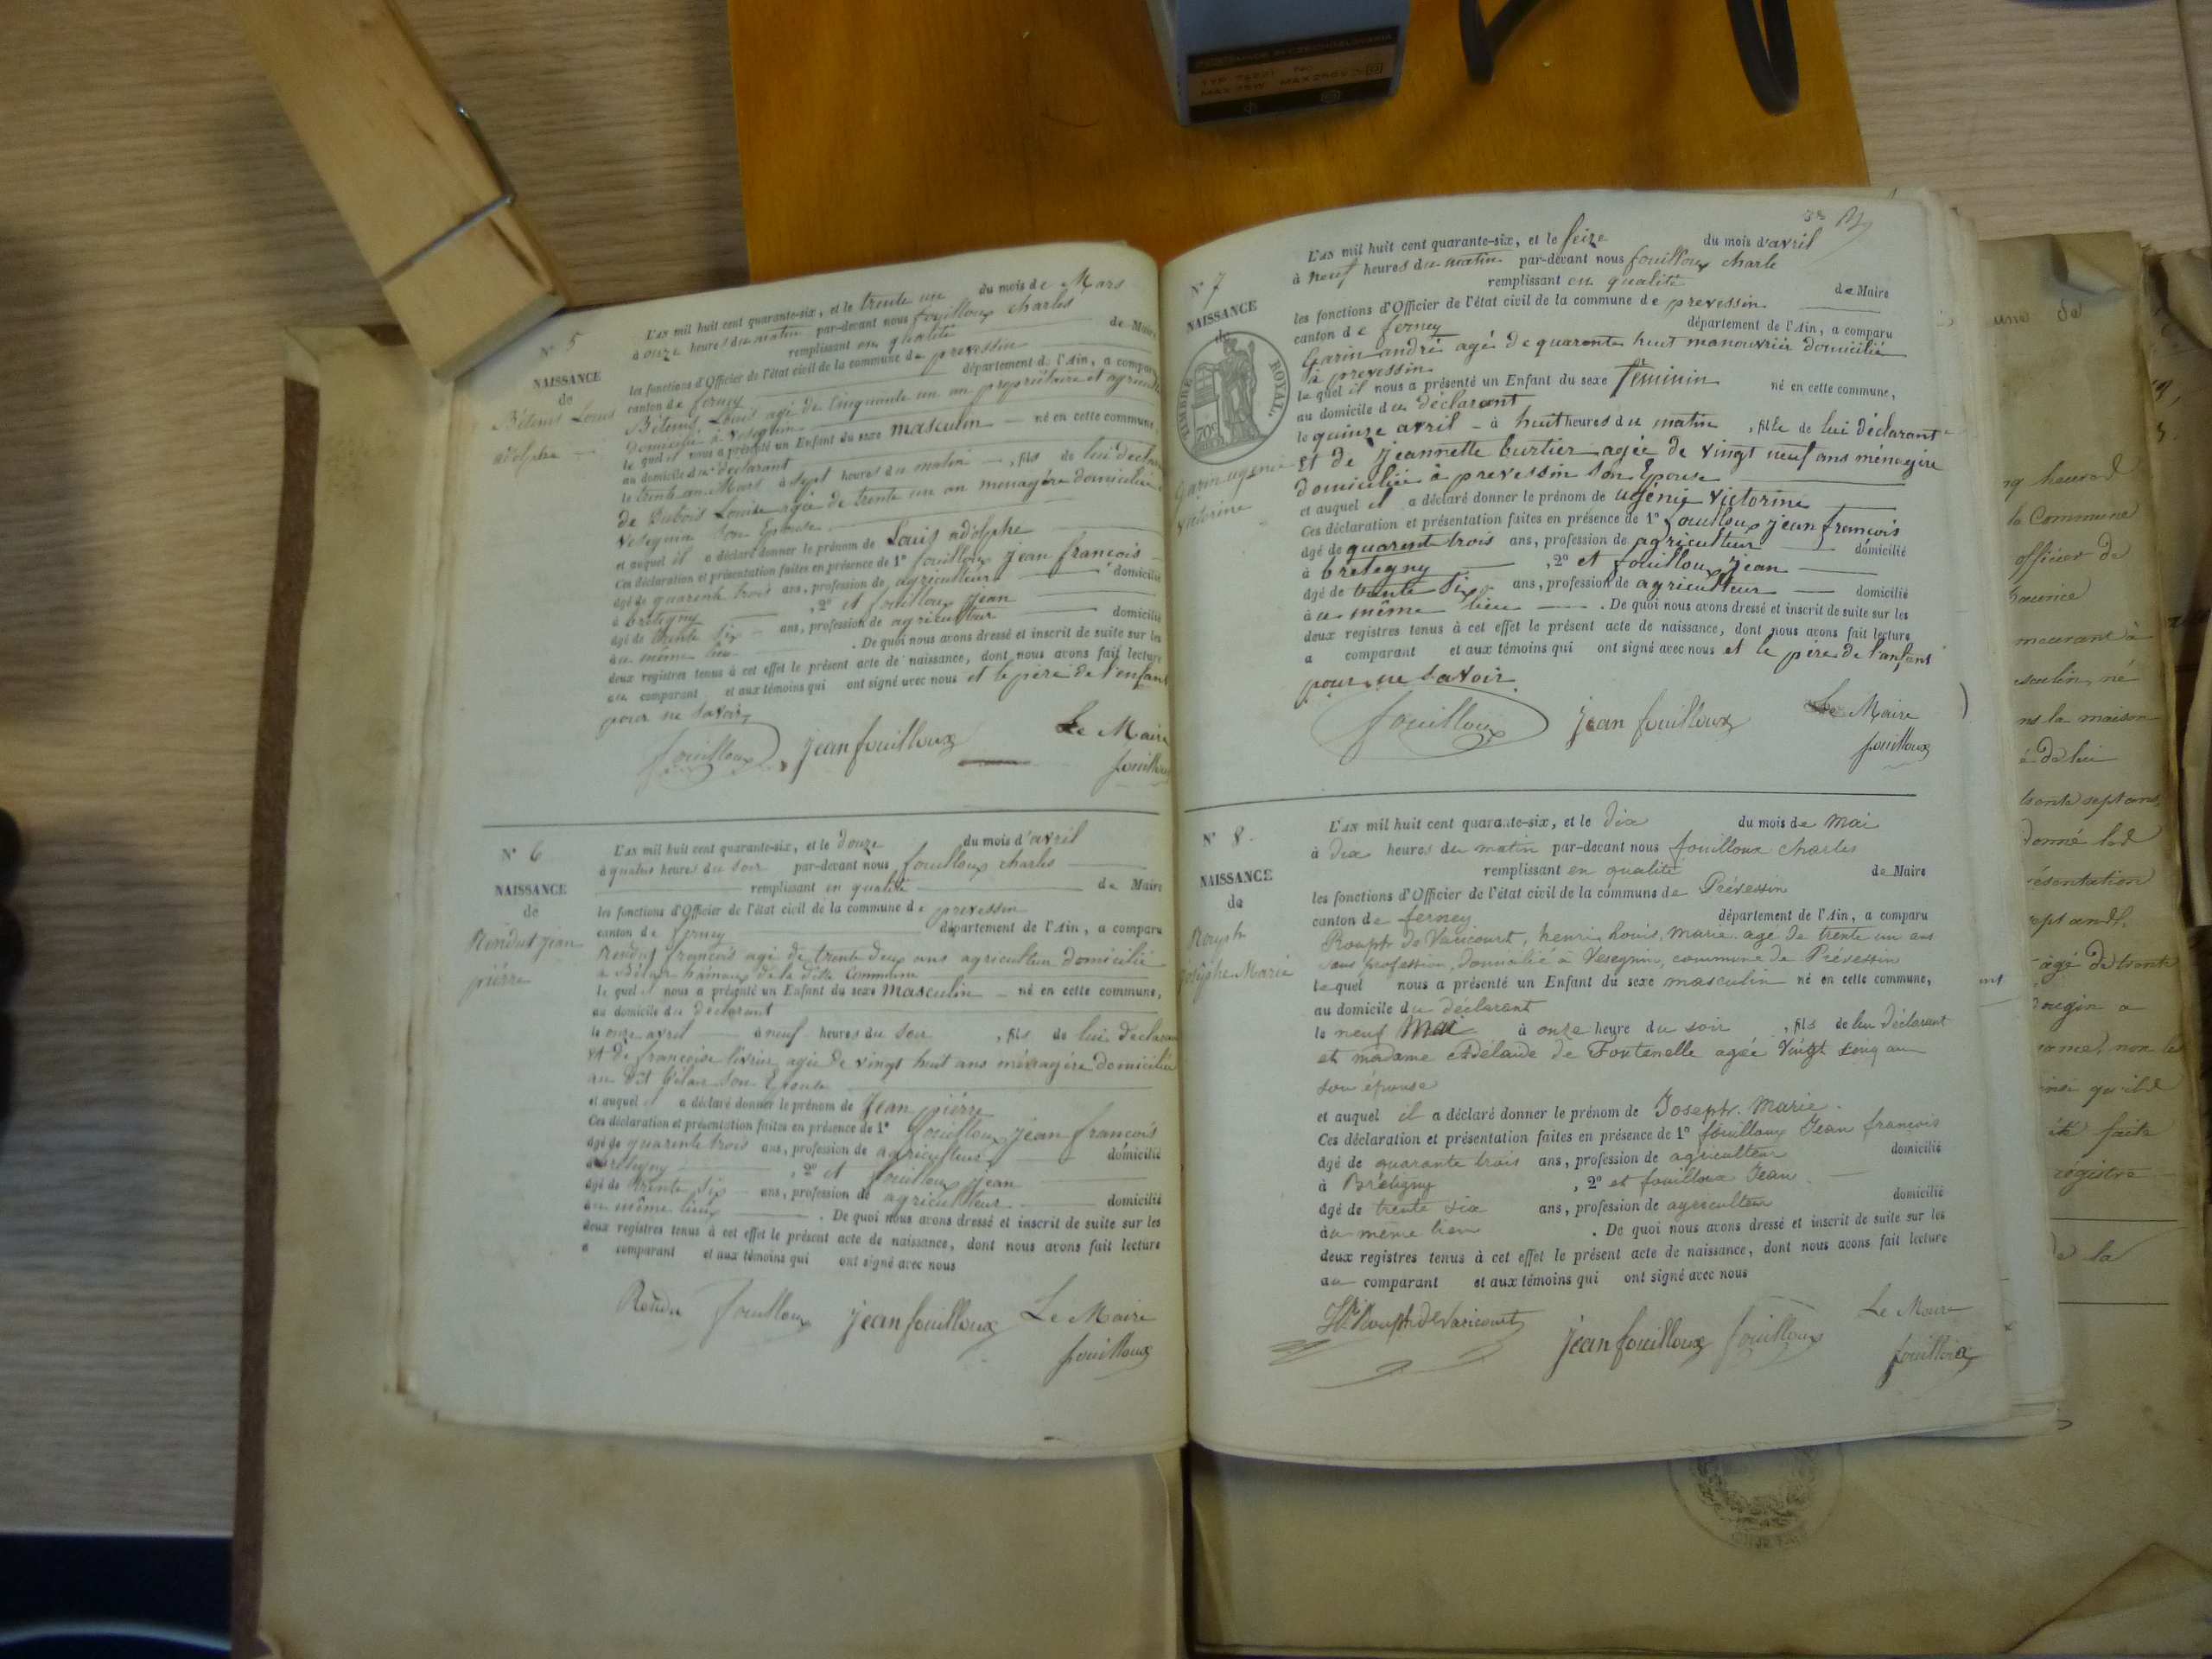 N° 5
NAISSANCE
de
Bétems Louis
adolphe
L'AN mil huit cent quarante-six, et le trente un du mois de Mars
à onze heures du matin par-devant nous fouilloux charles
remplissant en qualité de Maire
les fonctions d'Officier de l'état civil de la commune de prevessin
canton de ferney département de l'Ain, a comparu
Bétems Louis agé de Cinquante un an propriétaire et
domicilié à Vesegnin
le quel il nous a présenté un Enfant du sexe masculin né en cette commune,
au domicile du déclarant
le trente un Mars à sept heures du matin, fils de lui
de Dubois Louise agée de trente un an menagère domiciliée
Vesegnin Son Epouse
et auquel il a déclaré donner le prénom de Louis adolphe
Ces déclaration et présentation faites en présence de 1° fouilloux jean francois
âgé de quarente trois ans, profession de agriculteur domicilié
à bretegny, 2° et fouilloux jean
âgé de trente six ans, profession de agriculteur domicilié
au même lieu. De quoi nous avons dressé et inscrit de suite sur les
deux registres tenus à cet effet le présent acte de naissance, dont nous avons fait lecture
au comparant et aux témoins qui ont signé avec nous et le père de l'enfant
pour ne Savoir
fouilloux jean fouilloux Le Maire
fouilloux
N° 6
NAISSANCE
de
Rendut jean
piérre
L'AN mil huit cent quarante-six, et le douze du mois d'avril
à quatre heures du soir par-devant nous fouilloux charles
remplissant en qualité de Maire
les fonctions d'Officier de l'état civil de la commune de prevessin
canton de ferney département de l'Ain, a comparu
Rendut françois agé de trente deux ans agriculteur domicilié
hameau de la dite Commune
le quel il nous a présenté un Enfant du sexe masculin né en cette commune,
au domicile du déclarant
le onze avril à neuf heures du soir, fils de lui déclarant
et de françoise agée de vingt huit ans ménagère domiciliée
au dit Son Epouse
et auquel il a déclaré donner le prénom de Jean piérre
Ces déclaration et présentation faites en présence de 1° fouilloux jean francois
âgé de quarente trois ans, profession de agriculteur domicilié
à bretigny, 2° et fouilloux jean
âgé de trente six ans, profession de agriculteur domicilié
au même lieux. De quoi nous avons dressé et inscrit de suite sur les
deux registres tenus à cet effet le présent acte de naissance, dont nous avons fait lecture
a comparant et aux témoins qui ont signé avec nous
Rendu fouilloux jean fouilloux Le Maire
fouilloux
N° 7
NAISSANCE
de
TIMBRE ROYAL
Garin ugenie
victorine
L'AN mil huit cent quarante-six, et le seize du mois d'avril
à neuf heures du matin par-devant nous fouilloux charle
remplissant en qualité de Maire
les fonctions d'Officier de l'état civil de la commune de prevessin
canton de ferney département de l'Ain, a comparu
Garin andré agé de quarente huit manouvrier domicilié
à prevessin
le quel il nous a présenté un Enfant du sexe féminin né en cette commune,
au domicile du déclarant
le quinze avril à huit heures du matin, fille de lui déclarant
et de jeannette burtier agée de vingt neuf ans ménagère
domiciliée à prevessin Son Epouse
et auquel il a déclaré donner le prénom de ugénie victorine
Ces déclaration et présentation faites en présence de 1° fouilloux jean francois
âgé de quarente trois ans, profession de agriculteur domicilié
à bretegny, 2° et fouilloux jean
âgé de trente Six ans, profession de agriculteur domicilié
au même lieu. De quoi nous avons dressé et inscrit de suite sur les
deux registres tenus à cet effet le présent acte de naissance, dont nous avons fait lecture
a comparant et aux témoins qui ont signé avec nous et le père de l'enfant
pour ne Savoir
fouilloux jean fouilloux Le Maire
fouilloux
N° 8
NAISSANCE
de
Rouph
Josephe Marie
L'AN mil huit cent quarante-six, et le dix du mois de mai
à dix heures du matin par-devant nous fouilloux charles
remplissant en qualité de Maire
les fonctions d'Officier de l'état civil de la commune de Prévessin
canton de ferney département de l'Ain, a comparu
Rouph de Varicourt, henri, Louis, Marie agé de trente un ans
sans profession, domicilié à Vesegnin, commune de Prévessin
lequel nous a présenté un Enfant du sexe masculin né en cette commune,
au domicile du déclarant
le neuf Mai à onze heure du soir, fils de lui déclarant
et madame Adélaïde de Fontenelle agée vingt cinq an
son épouse
et auquel il a déclaré donner le prénom de Joseph. Marie.
Ces déclaration et présentation faites en présence de 1° fouilloux Jean francois
âgé de quarante trois ans, profession de agriculteur domicilié
à Brétigny, 2° et fouilloux Jean
âgé de trente six ans, profession de agriculteur domicilié
au même lieu. De quoi nous avons dressé et inscrit de suite sur les
deux registres tenus à cet effet le présent acte de naissance, dont nous avons fait lecture
au comparant et aux témoins qui ont signé avec nous
Rouph de Varicourt jean fouilloux fouilloux Le Maire
fouilloux
heures
la Commune
officier de
mourant à
né
ns la maison
é de lui
trente sept ans,
donné
âgé de trente
qu'ils
faite
régistre
de la